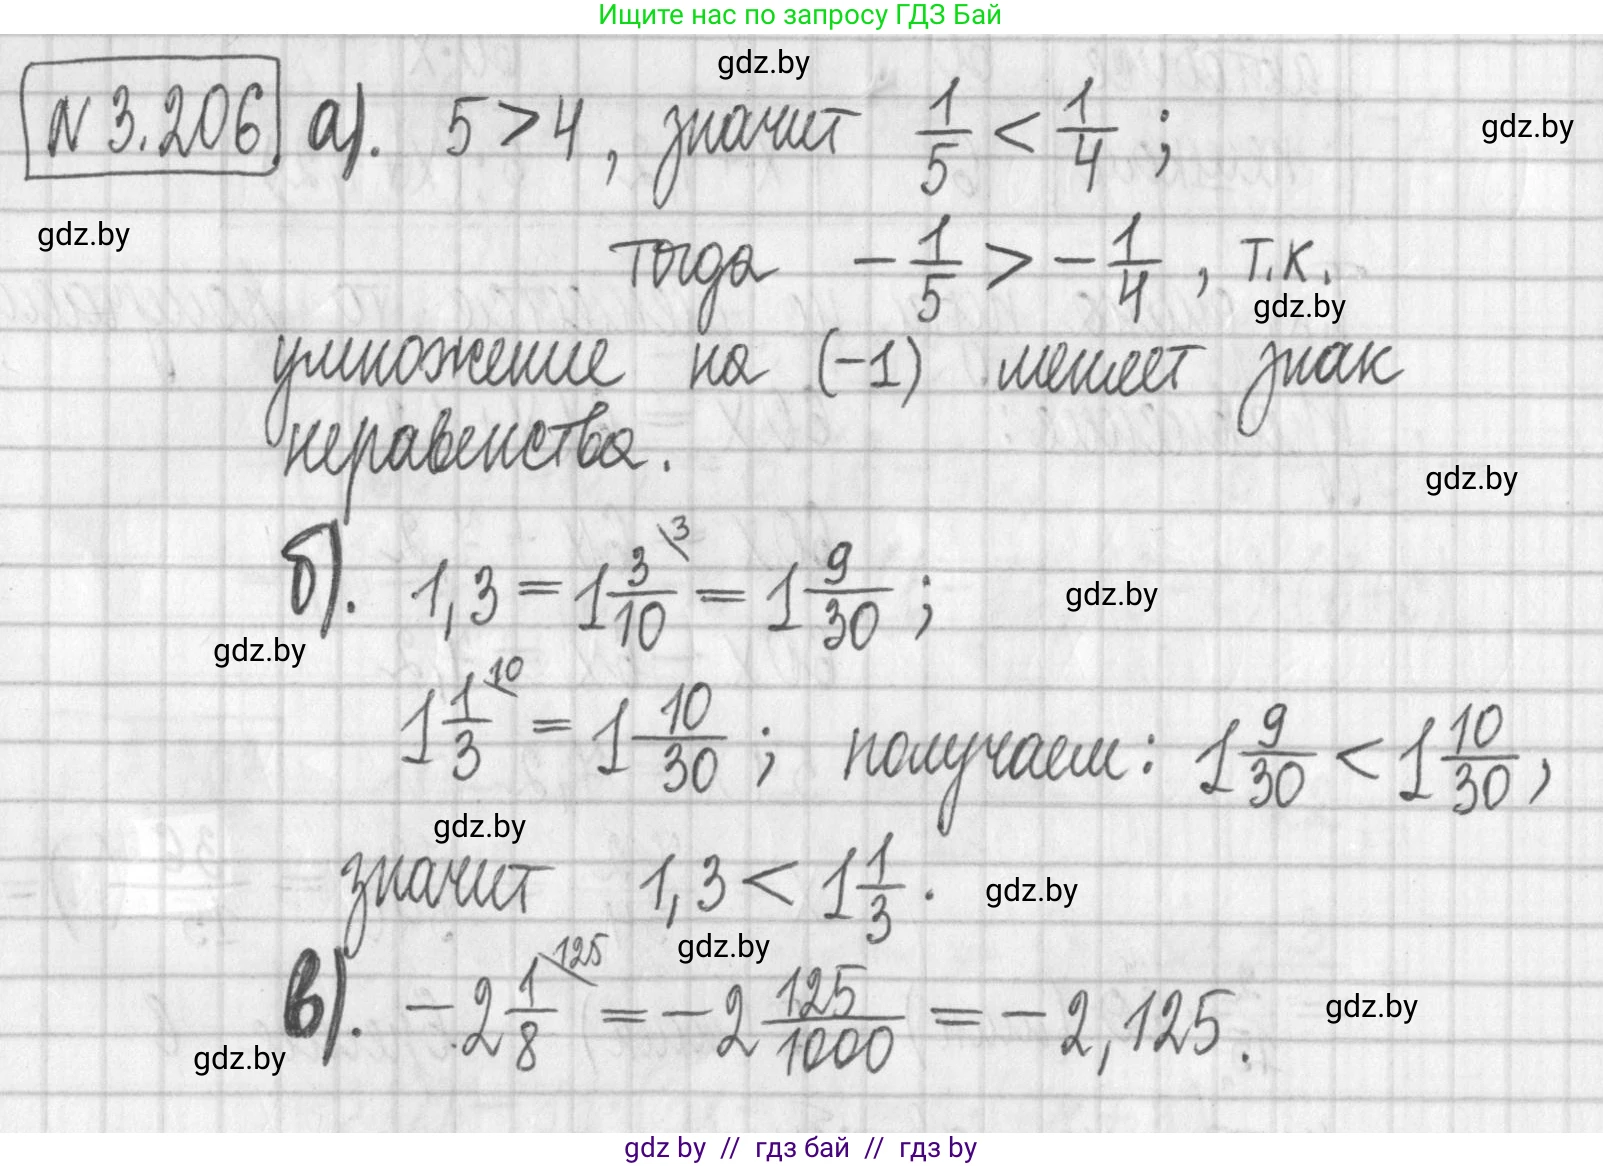 Ищите нас по запросу ГДЗ Бай
gdz.by
N 3.206 а). 5 > 4, значит 1/5 < 1/4 ;
gdz.by
gdz.by
тогда -1/5 > -1/4 , т.к.
gdz.by
умножение на (-1) меняет знак
неравенства.
gdz.by
б). 1,3 = 1 3/10 \3 = 1 9/30 ;
gdz.by
gdz.by
1 1/3 \10 = 1 10/30 ; получаем: 1 9/30 < 1 10/30 ,
gdz.by
значит 1,3 < 1 1/3 .
gdz.by
gdz.by
в). -2 1/8 \125 = -2 125/1000 = -2,125.
gdz.by
gdz.by
gdz by // гдз бай // гдз by